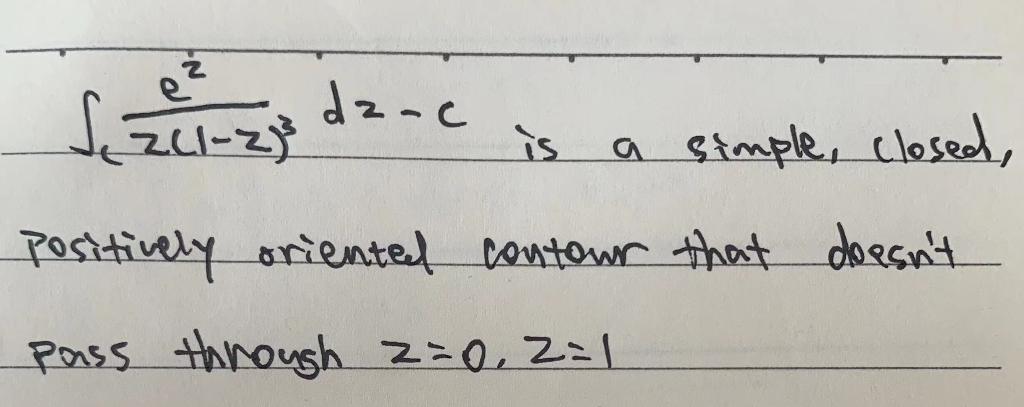 ∫_C e^z / z(1-z)^3 dz - C is a simple, closed,
positively oriented contour that doesn't
pass through z=0, z=1